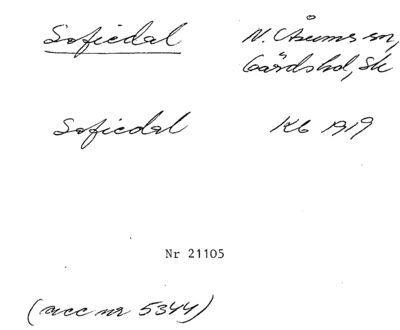 Sofiedal N. Åsums sn,
Gärds hd, Sk
Sofiedal Kb 1919
Nr 21105
(acc nr 5344)